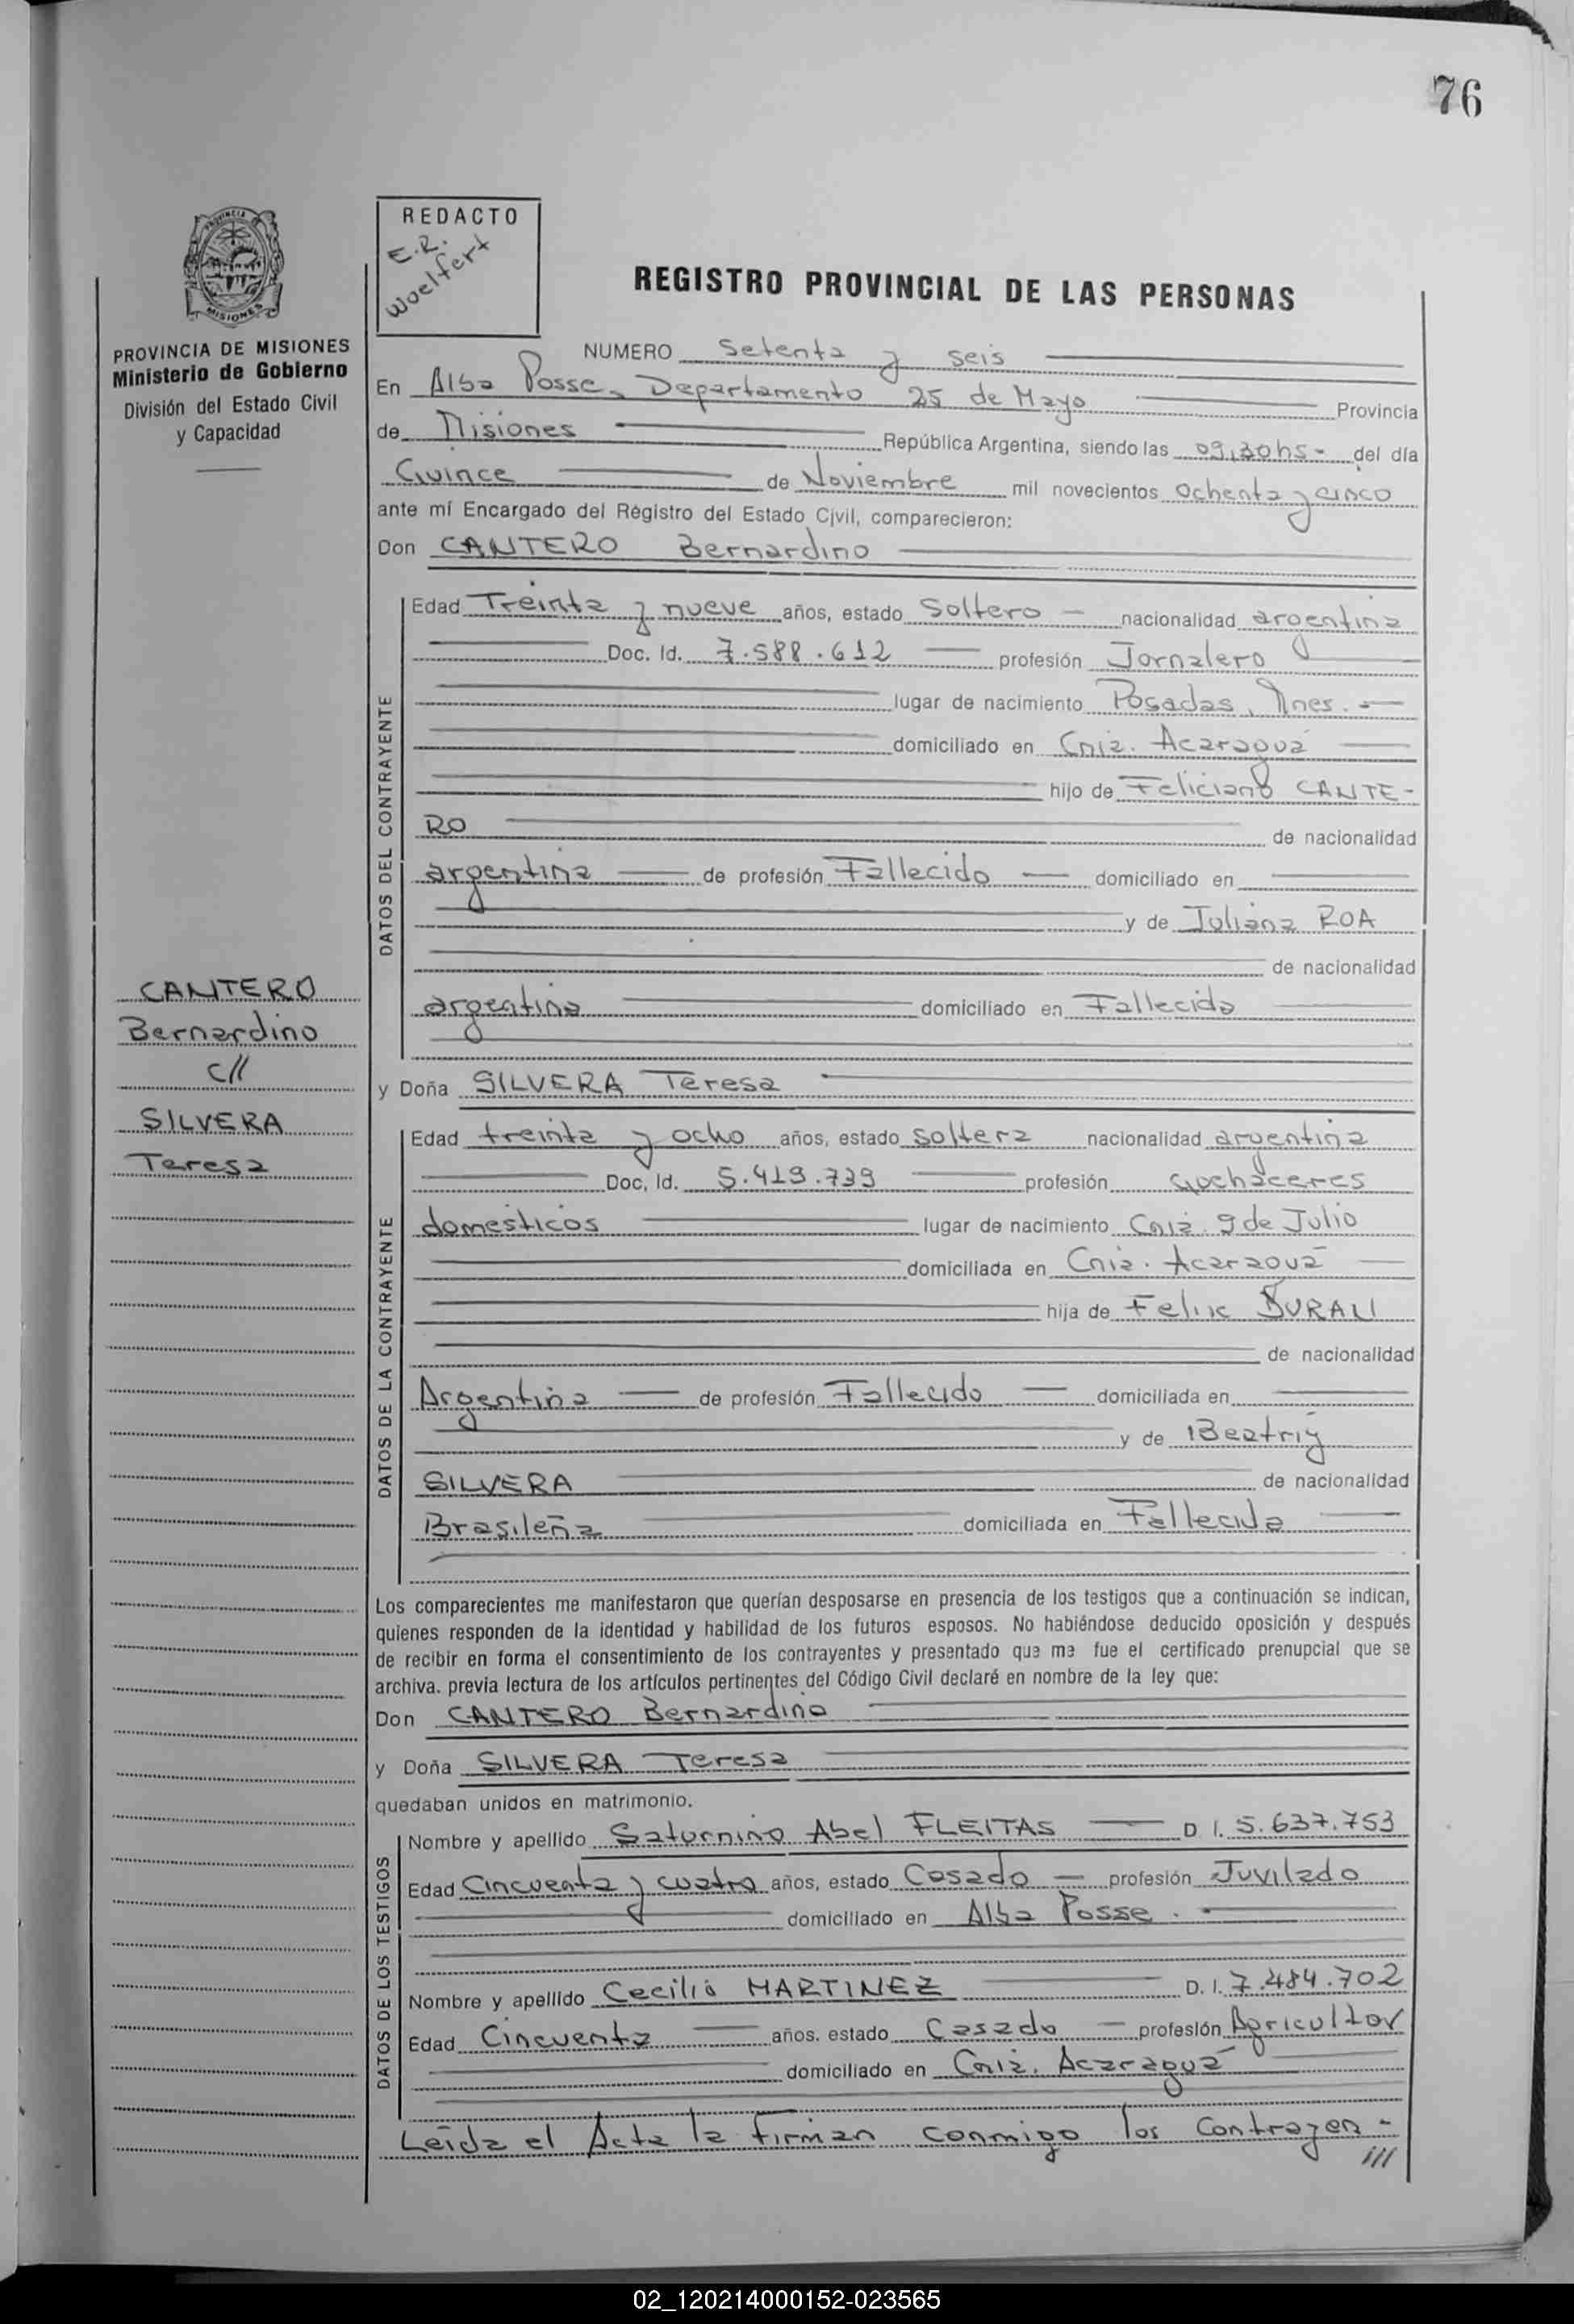 76
REDACTO
E.R.
Woelfert
REGISTRO PROVINCIAL DE LAS PERSONAS
PROVINCIA DE MISIONES
Ministerio de Gobierno
División del Estado Civil
y Capacidad
NUMERO Setenta y seis
En Alba Posse, Departamento 25 de Mayo Provincia
de Misiones República Argentina, siendo las 09,30hs- del día
Quince de Noviembre mil novecientos ochenta y cinco
ante mí Encargado del Registro del Estado Civil, comparecieron:
Don CANTERO Bernardino
DATOS DEL CONTRAYENTE
Edad Treinta y nueve años, estado Soltero - nacionalidad argentina
Doc. Id. 7.588.612 profesión Jornalero
lugar de nacimiento Posadas, Mnes.
domiciliado en Cnia. Acaraguá
hijo de Feliciano CANTE-
RO de nacionalidad
argentina de profesión Fallecido domiciliado en
y de Juliana ROA
de nacionalidad
argentina domiciliado en Fallecida
CANTERO
Bernardino
c//
SILVERA
Teresa
y Doña SILVERA Teresa
DATOS DE LA CONTRAYENTE
Edad treinta y ocho años, estado soltera nacionalidad argentina
Doc, Id. 5.419.739 profesión Quehaceres
domesticos lugar de nacimiento Cnia. 9 de Julio
domiciliada en Cnia. Acaraguá
hija de Felix DURAU
de nacionalidad
Argentina de profesión Fallecido domiciliada en
y de Beatriz
SILVERA de nacionalidad
Brasileña domiciliada en Fallecida
Los comparecientes me manifestaron que querían desposarse en presencia de los testigos que a continuación se indican,
quienes responden de la identidad y habilidad de los futuros esposos. No habiéndose deducido oposición y después
de recibir en forma el consentimiento de los contrayentes y presentado que me fue el certificado prenupcial que se
archiva. previa lectura de los artículos pertinentes del Código Civil declaré en nombre de la ley que:
Don CANTERO Bernardino
y Doña SILVERA Teresa
quedaban unidos en matrimonio.
DATOS DE LOS TESTIGOS
Nombre y apellido Saturnino Abel FLEITAS D I. 5.637.753
Edad Cincuenta y cuatro años, estado Casado - profesión Juvilado
domiciliado en Alba Posse.
Nombre y apellido Cecilio MARTINEZ D. I. 7.484.702
Edad Cincuenta años. estado Casado - profesión Agricultor
domiciliado en Cnia. Acaraguá
Leida el Acta la firman conmigo los contrayen-
///
02_120214000152-023565